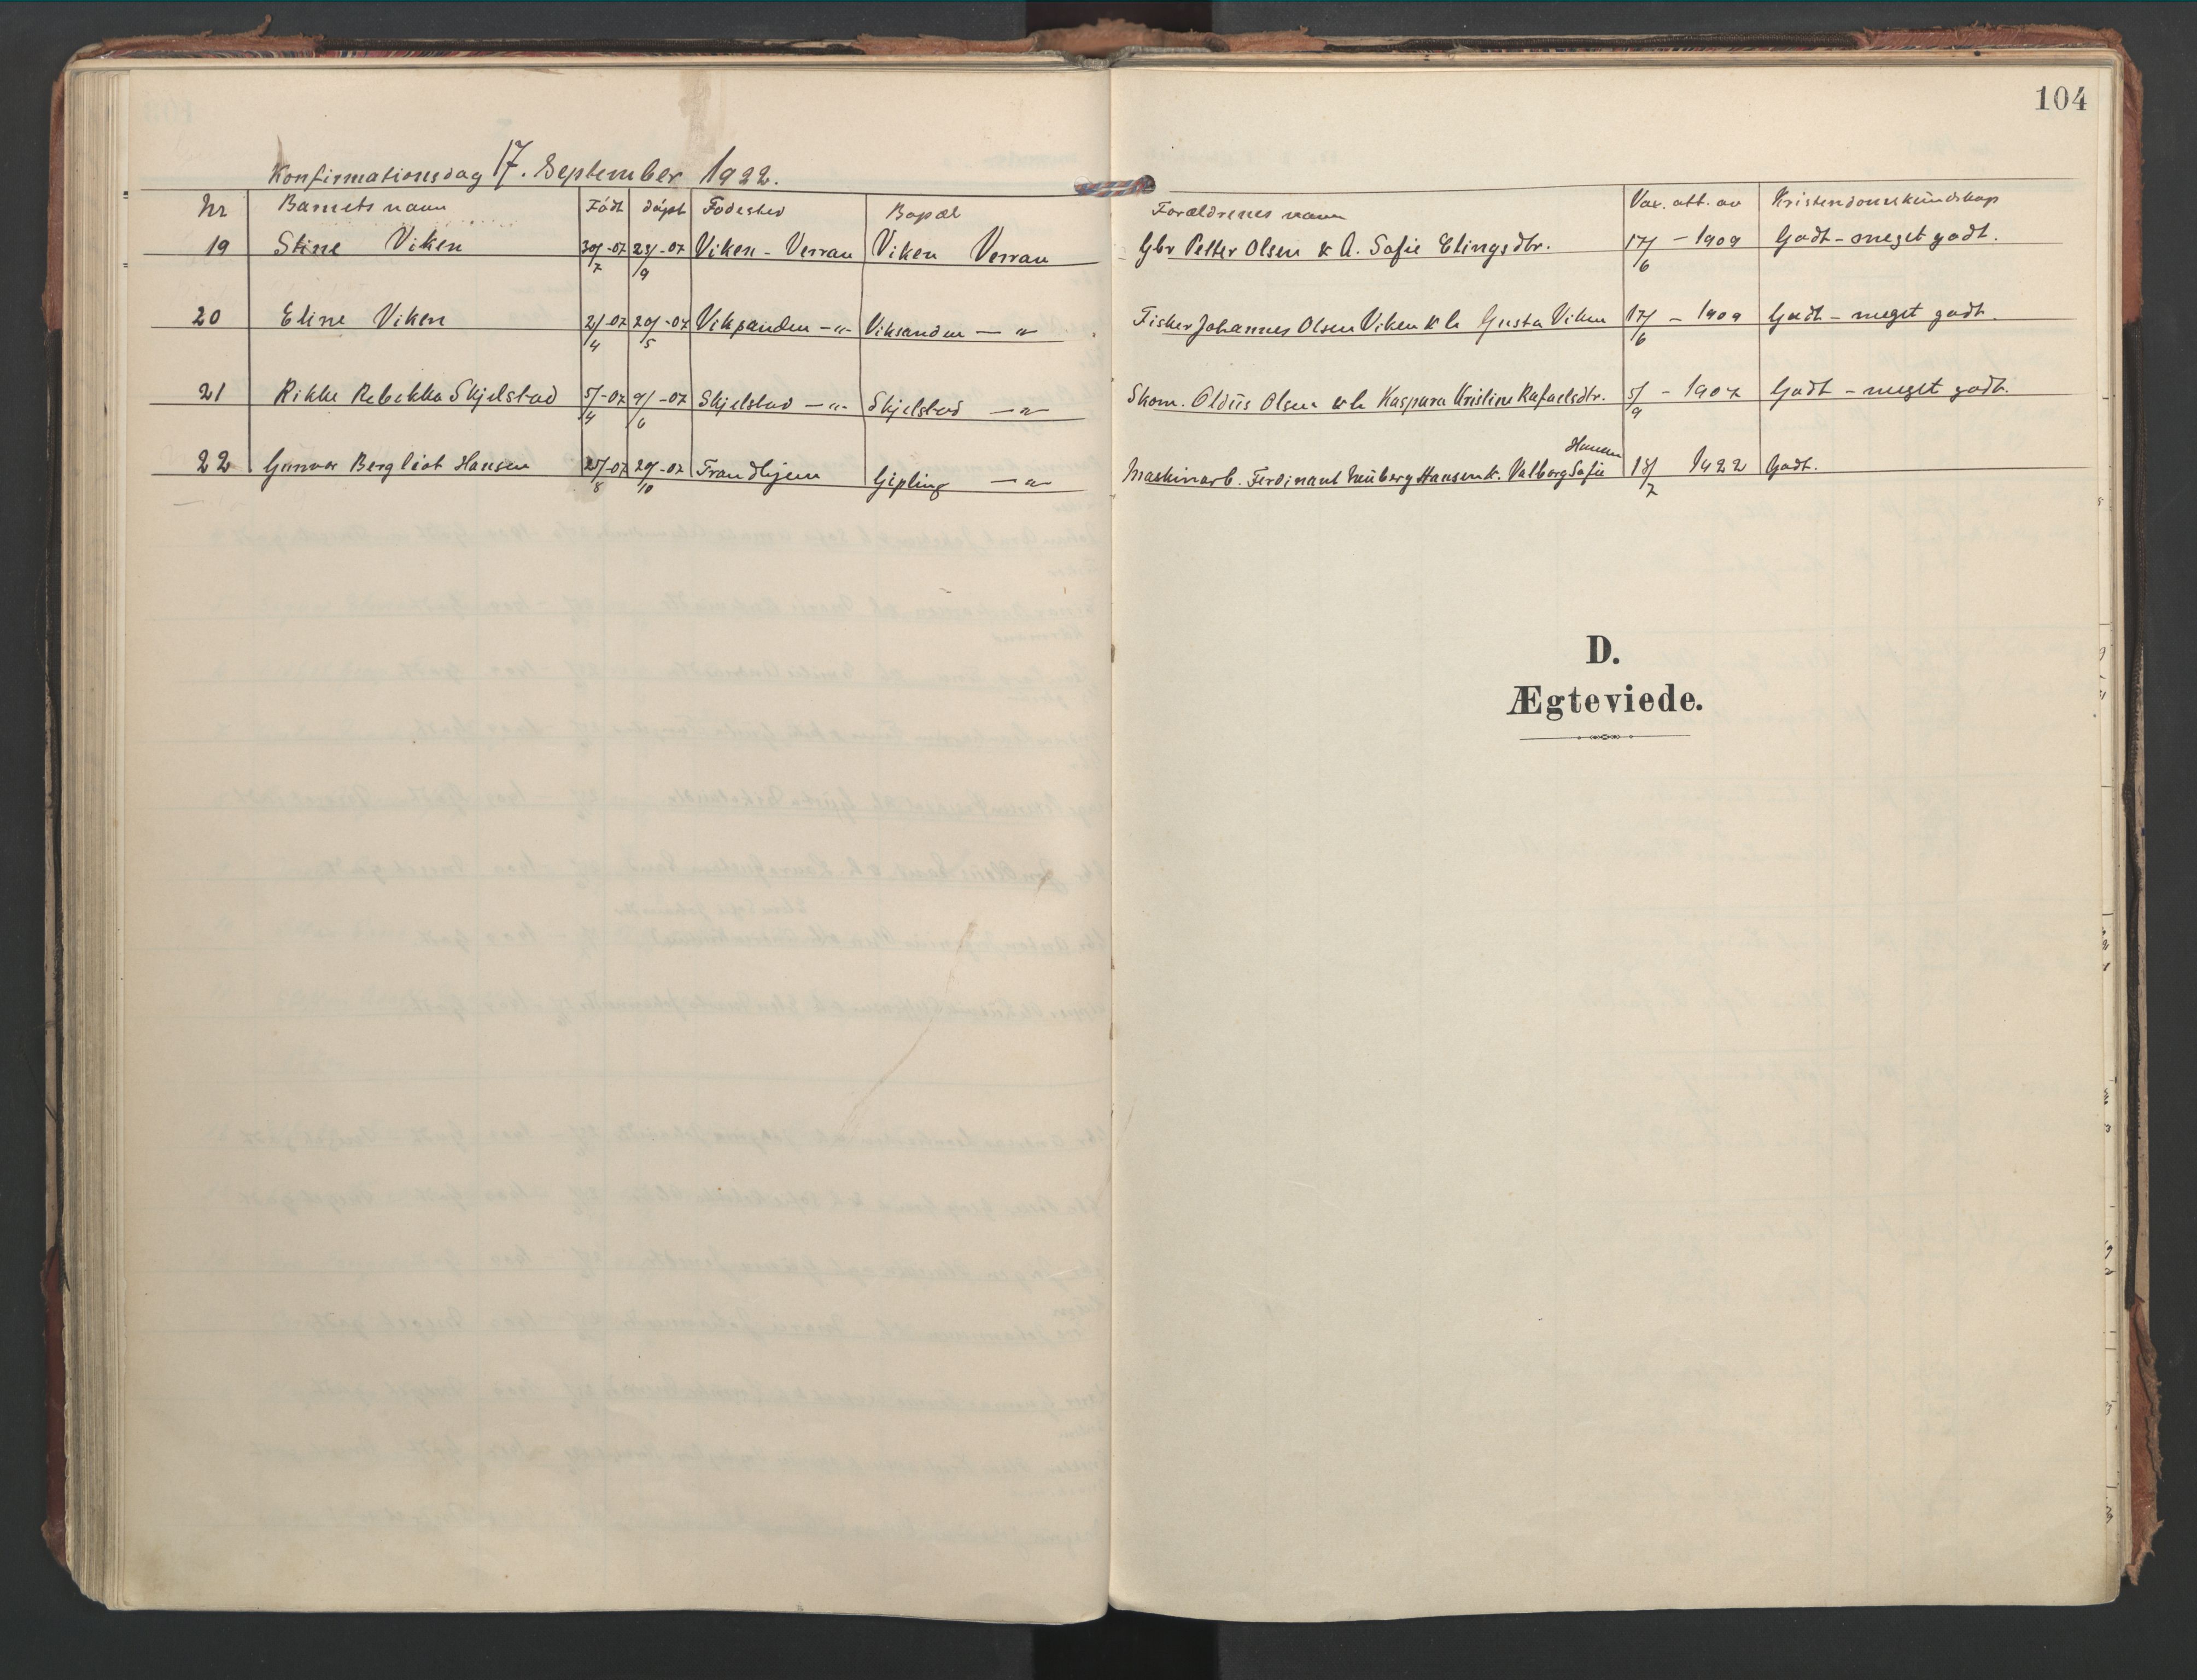 104
Konfirmationsdag 17. September 1922.
Nr Barnets navn Født døpt Fødested Bopæl Forældrenes navn Vax. att. av Kristendomskundskap
19 Stine Viken 30/7-07 29/9-07 Viken - Verran Viken Verran Gbr Petter Olsen & A. Sofie Elingsdtr. 17/6 - 1909 Godt - meget godt.
20 Eline Viken 2/4-07 20/5-07 Viksanden -"- Viksanden -"- Fisker Johannes Olsen Viken & h Gusta Viken 17/6 - 1909 Godt - meget godt.
21 Rikke Rebekka Skjelstad 5/4-07 9/6-07 Skjelstad -"- Skjelstad -"- Skom. Oldus Olsen & h Kaspara Kristine Rafaelsdtr. 5/9 - 1907 Godt - meget godt.
Hansen
22 Gunvor Bergliot Hansen 25/8-07 20/10-07 Trondhjem Gipling -"- Maskinarb. Ferdinant Hansen & Valborg Sofie 18/7 1922 Godt.
D.
Ægteviede.